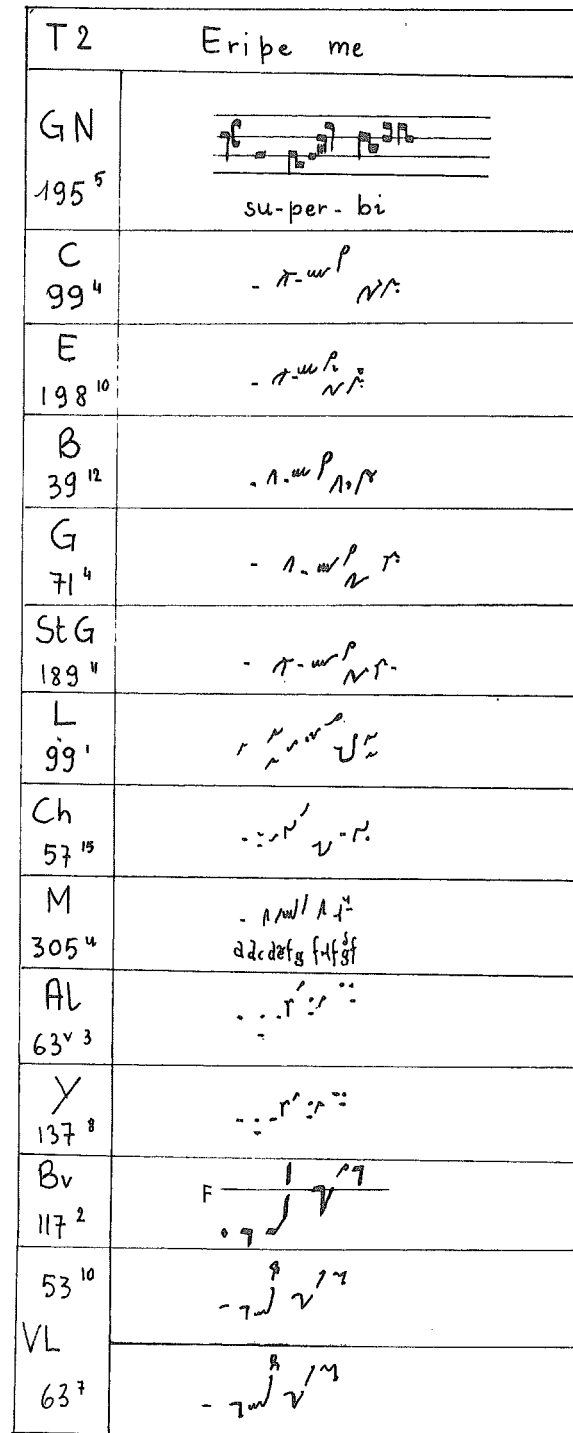 T2 Eripe me
GN
195 5
su-per-bi
C
99 4
E
198 10
B
39 12
G
71 4
St G
189 11
L
99 1
Ch
57 15
M
305 4
Al
63v 3
Y
137 8
Bv
117 2
F
53 10
VL
63 7